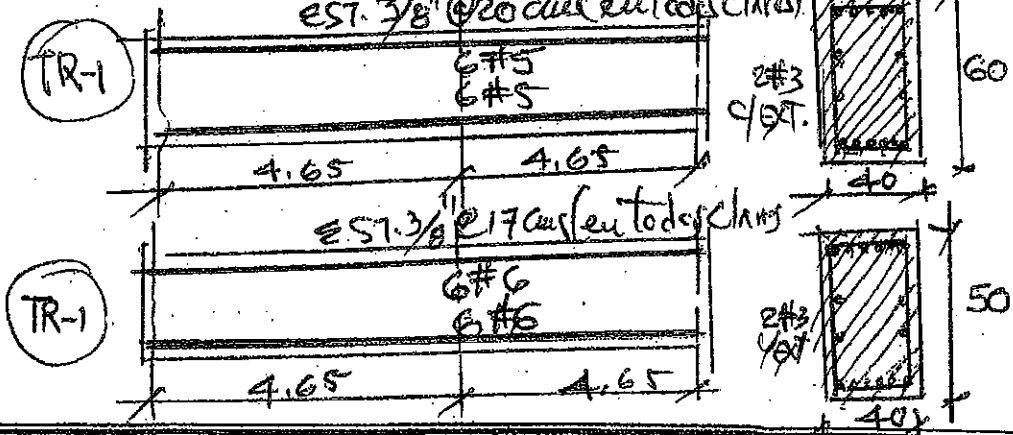 EST. 3/8" @20 cms (en todos Claros)
TR-1
6#5
6#5
2#3
C/EXT.
60
4.65
4.65
40
EST. 3/8" @17 cms (en todos Claros
TR-1
6#6
6#6
2#3
C/EXT
50
4.65
4.65
40